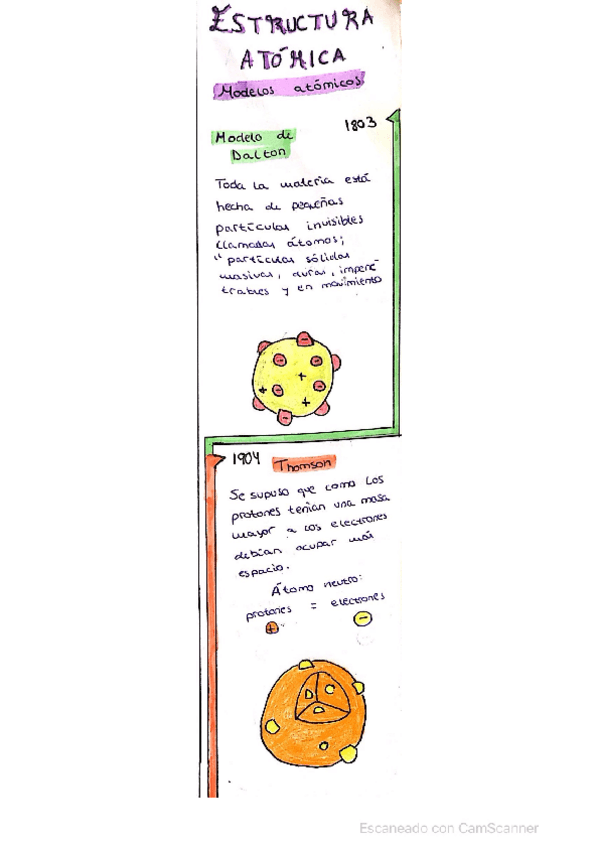 ESTRUCTURA
ATÓMICA
Modelos atómicos
1803
Modelo de
Dalton
Toda la materia está
hecha de pequeñas
partículas invisibles
llamadas átomos;
"partículas sólidas
masivas, duras, impene
trables y en movimiento
1904 Thomson
Se supuso que como los
protones tenían una masa
mayor a los electrones
debían ocupar más
espacio.
Átomo neutro:
protones = electrones
+ -
Escaneado con CamScanner